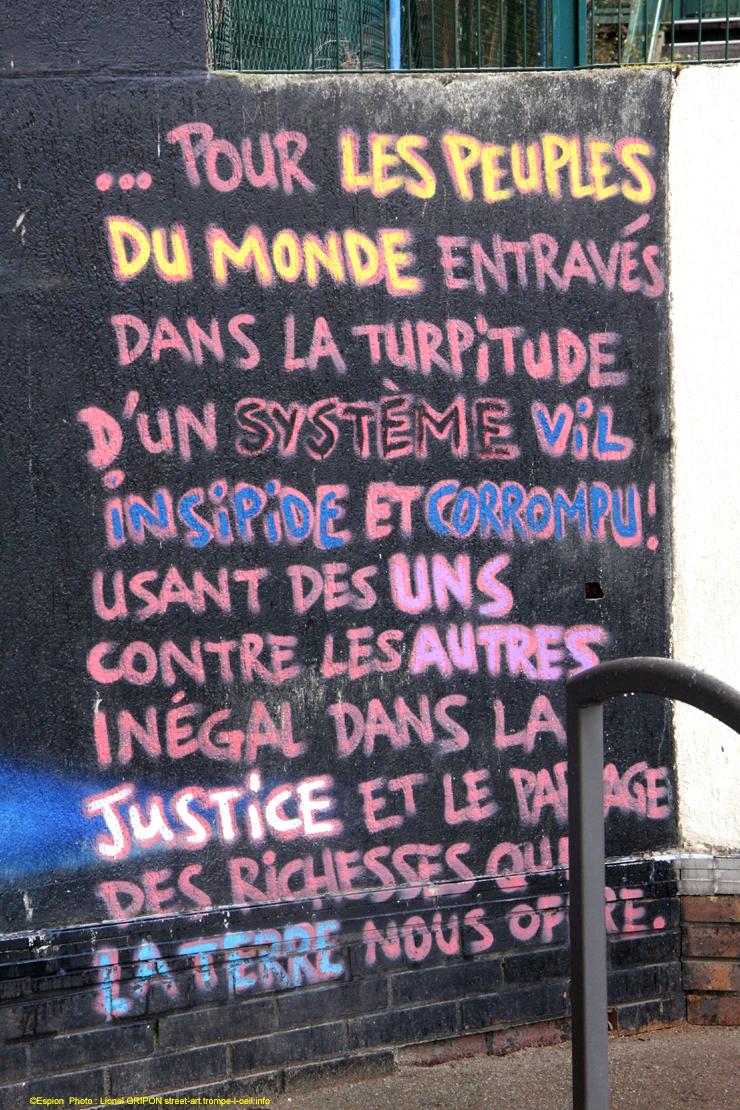 ... POUR LES PEUPLES
DU MONDE ENTRAVÉS
DANS LA TURPITUDE
D'UN SYSTÈME VIL
INSIPIDE ET CORROMPU!
USANT DES UNS
CONTRE LES AUTRES
INÉGAL DANS LA
JUSTICE ET LE PARTAGE
DES RICHESSES QUE
LA TERRE NOUS OFFRE.
©Espion Photo : Lionel GRIPON street-art.trompe-l-oeil.info